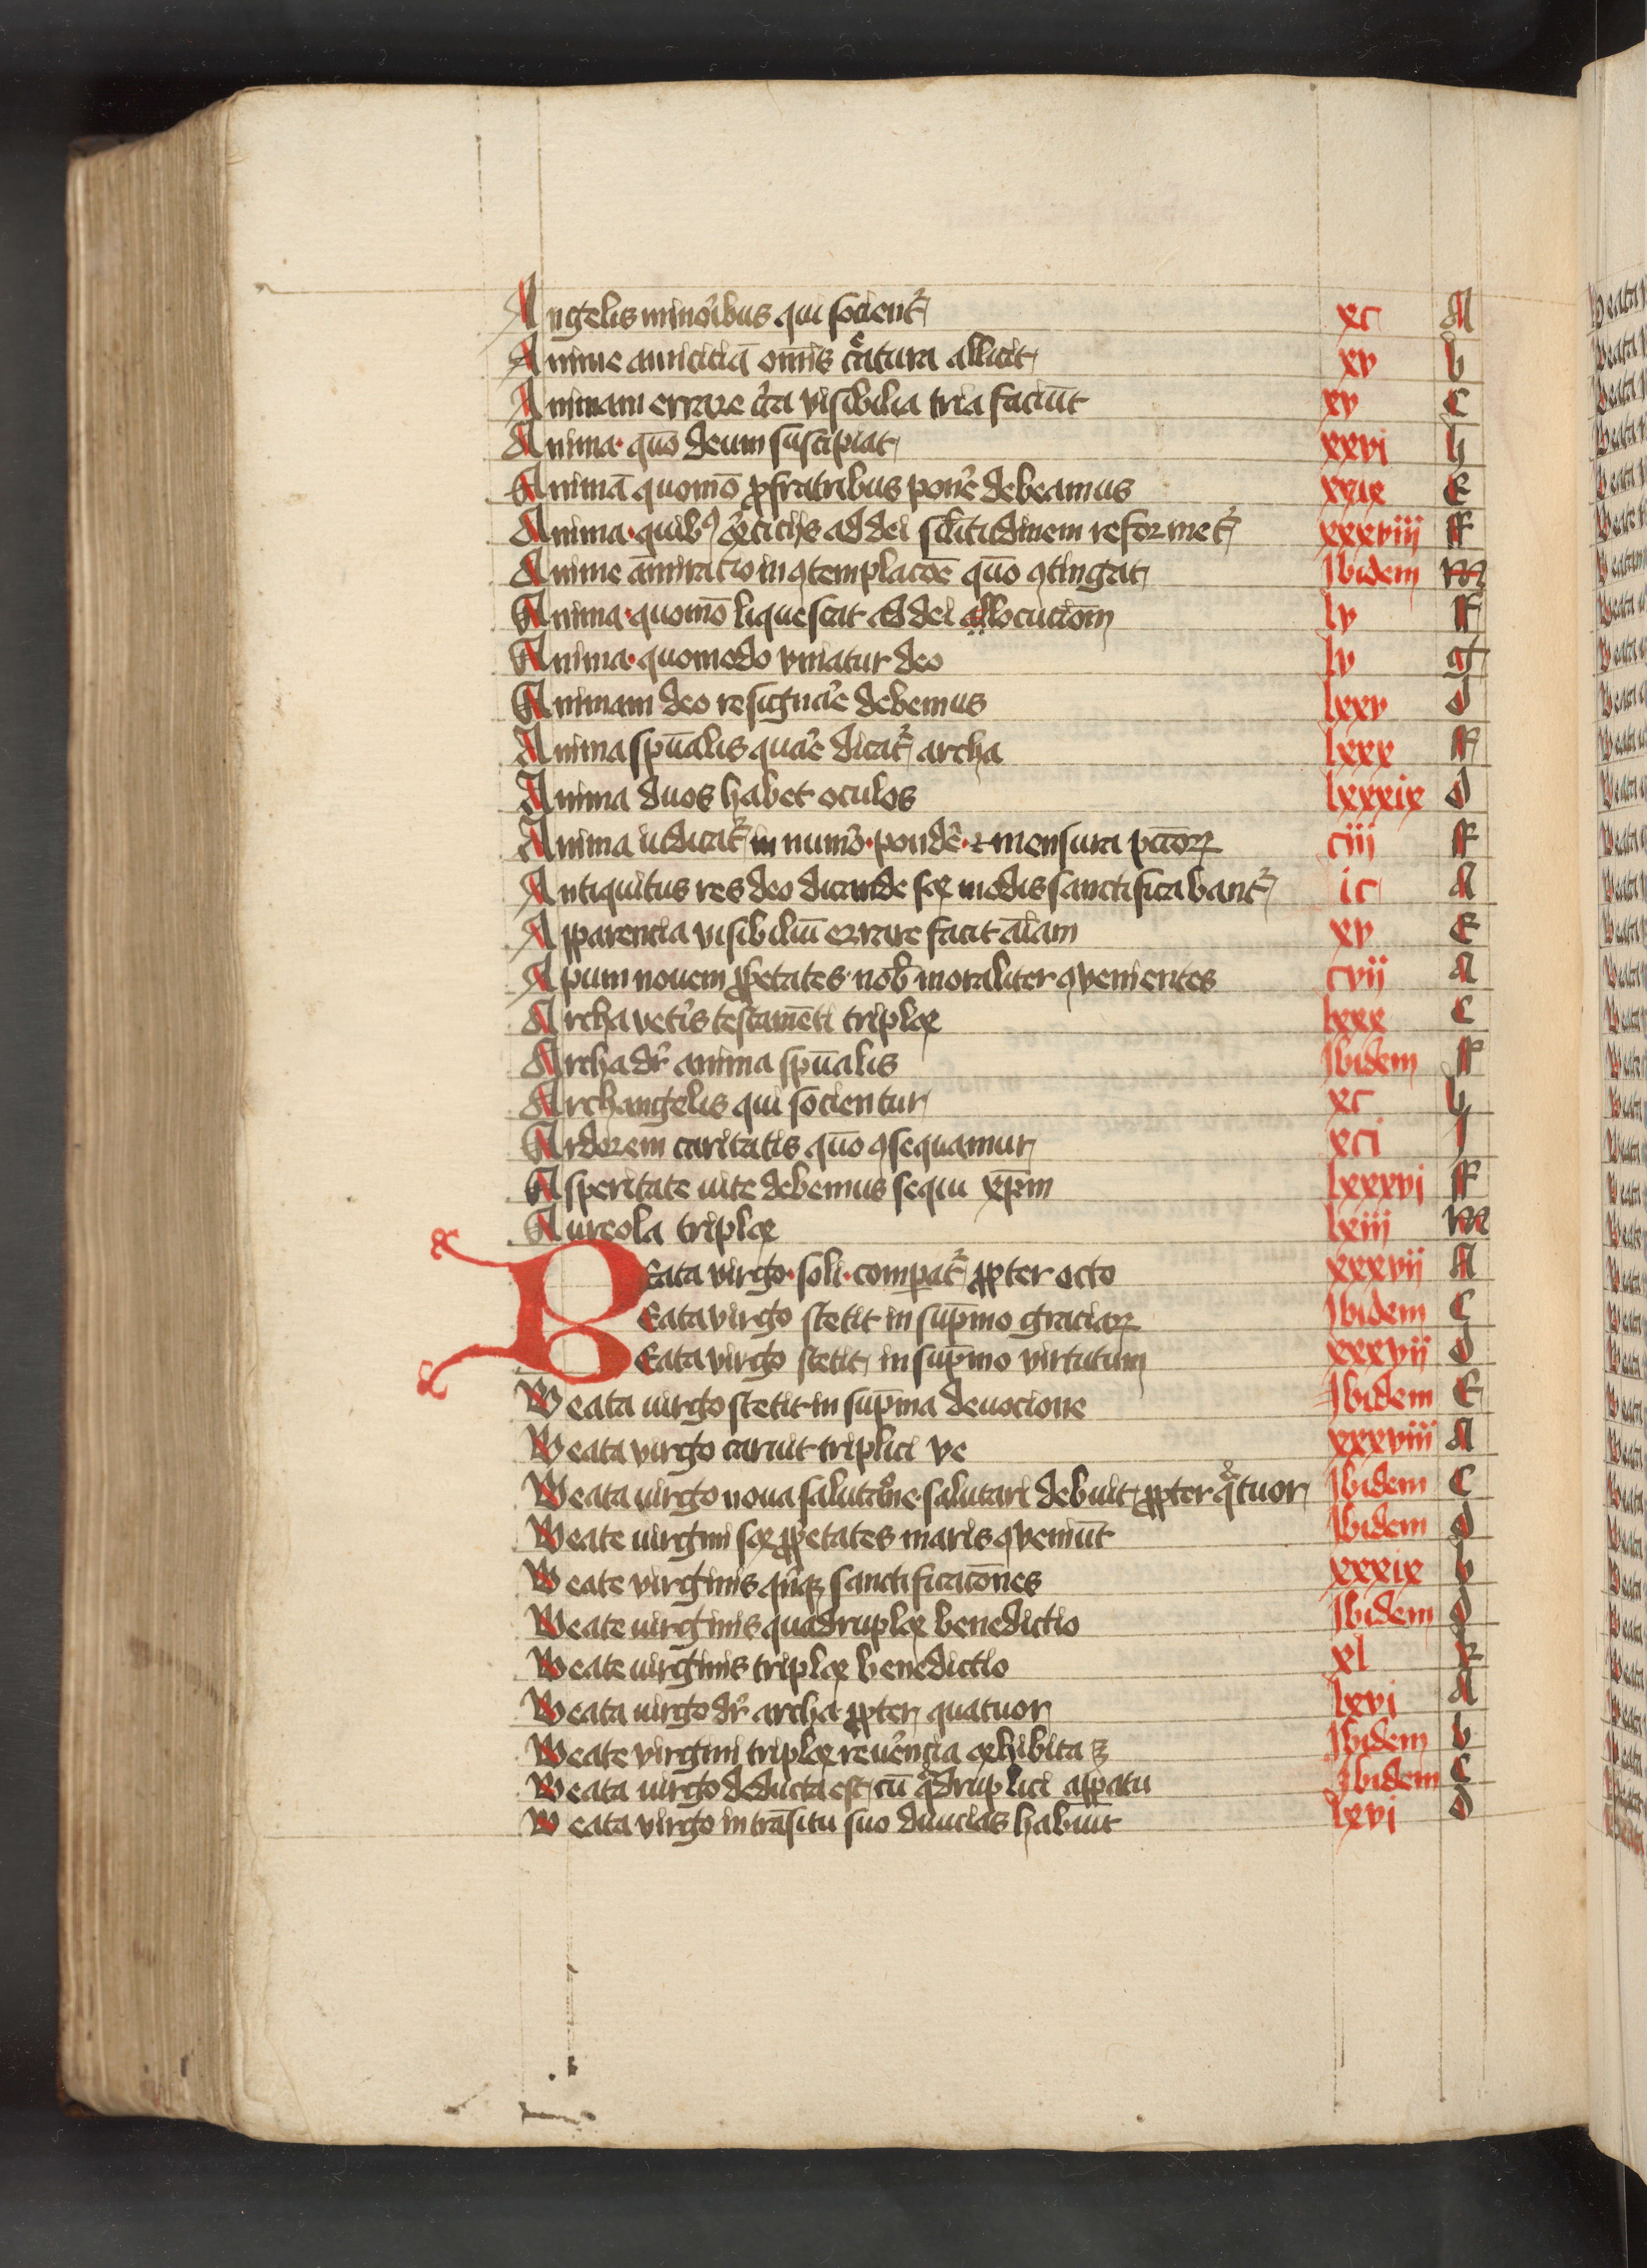 Angelis minoribus qui socient᷑ xc A
Anime amiciciā om̄is c͛atura allicit xv b
Animam errare c͛ca visibilia tria faciūt xv C
Anima · quō deum suscipiat xxvi h
Animā quomō ꝓ fratribus pon͛e debeamus xxix E
Anima · quibꝰ ex͛ciciis ad dei sil̄itudinem reformet᷑ xxxviii ff
Anime am̄iracio in ꝯtemplacōe quō ꝯtingat Ibidem m
Anima · quomō liquescat ad dei allocuciom̄ lv ff
Anima · quomodo vniatur deo lv g
Animam deo resigna͛e debemus lxxv d
Anima spūalis qua͛e dicat᷑ archa lxxx ff
Anima duos habet oculos lxxxix d
Anima iudicat᷑ in num͛o · pond͛e · ⁊ mensura pctōꝝ ciii ff
Antiquitus res deo dicande sex modis sanctificabant᷑ ic A
Apparencia visibiliū errare facit aīam xv E
Apum nouem ꝓp͛etates nob̄ moraliter ꝯuenientes cvii A
Archa vet͛is testamēti triplex lxxx C
Archa dr᷑ anima spūalis Ibidem ff
Archangelis qui socientur xc h
Ardorem caritatis quō ꝯsequamur xci I
Asperitate uite debemus sequi xp̄m lxxxvi ff
Aureola triplex lxiii m
BEata virgo · soli · compat᷑ ꝓpter octo xxxvii A
Eata virgo stetit in sup̄mo graciaꝝ Ibidem C
Eata virgo stetit in sup̄mo virtutum xxxvii d
Beata uirgo stetit in sup̄ma deuocione Ibidem E
Beata virgo caruit triplici ve xxxviii A
Beata uirgo noua salutac͛oe salutari debuit ꝓpter qͣtuor Ibidem C
Beate uirgini sex ꝓp͛etates maris ꝯueniūt Ibidem d
Beate virginis quīqꝫ sanctificacōnes xxxix b
Beate uirginis quadruplex benedictio Ibidem d
Beate uirginis triplex benedictio xl F
Beata uirgo dr᷑ archa ꝓpter quatuor lxvi A
Beate virgini triplex reu͛encia exhibita ꝫ Ibidem b
Beata uirgo deducta est cū qͣdruplici apꝑatu Ibidem C
Beata virgo in trāsitu suo diuicias habuit lxvi d